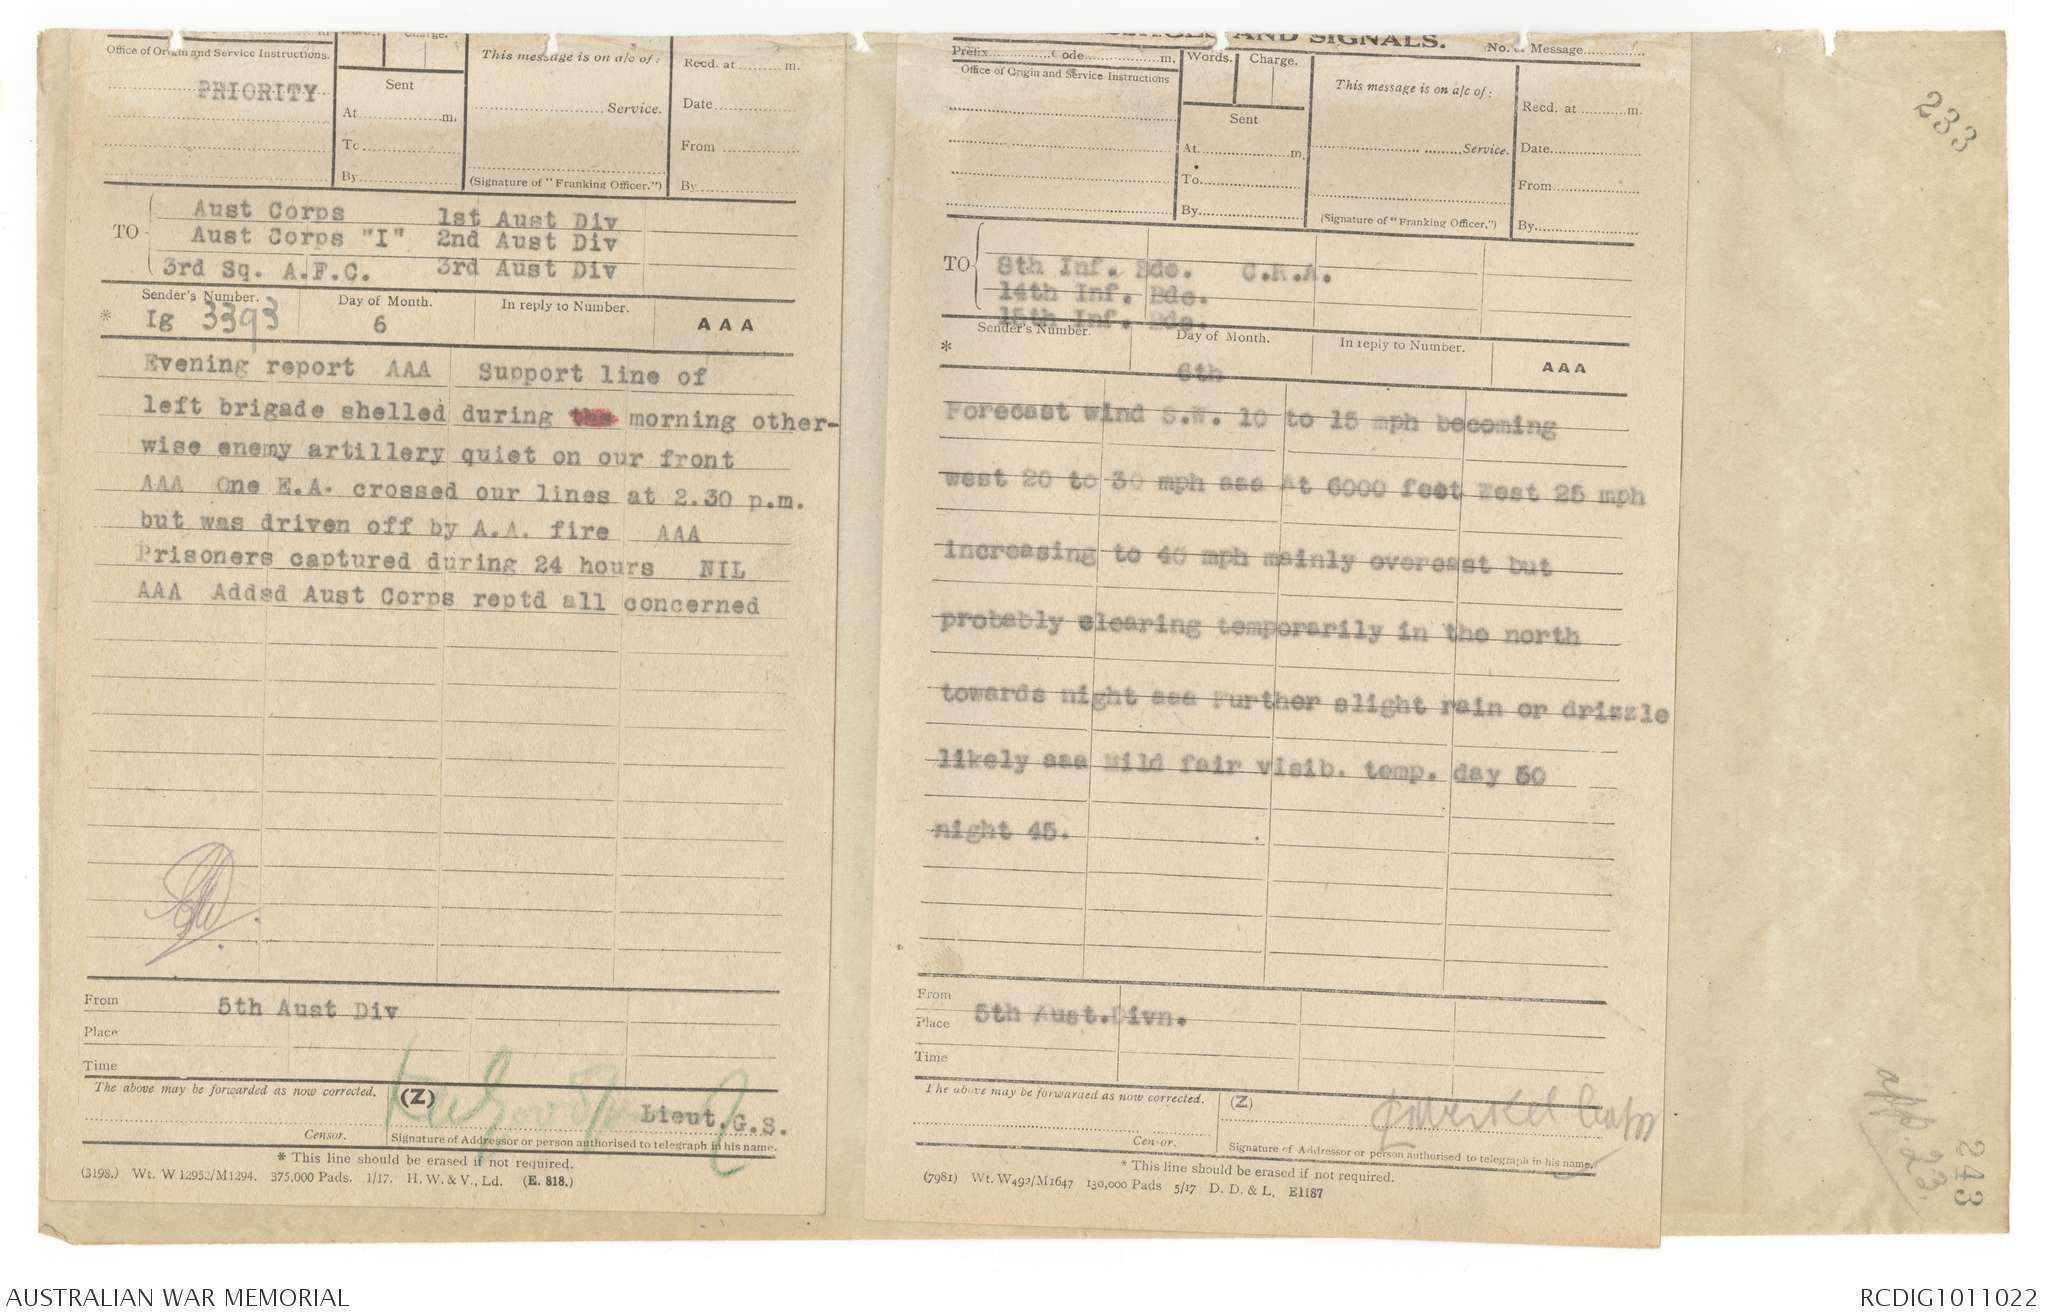 Office of Origin and Service Instructions.
PRIORITY
Charge.
Sent
At.....m.
To
By
This message is on a/c of:
Service.
(Signature of "Franking Officer.")
Recd. at.....m.
Date
From
By
TO
Aust Corps 1st Aust Div
Aust Corps "I" 2nd Aust Div
3rd Sq. A.F.C. 3rd Aust Div
Sender's Number. Day of Month. In reply to Number.
* Ig 3393 6 AAA
Evening report AAA Support line of
left brigade shelled during the morning other-
wise enemy artillery quiet on our front
AAA One E.A. crossed our lines at 2.30 p.m.
but was driven off by A.A. fire AAA
Prisoners captured during 24 hours NIL
AAA Addsd Aust Corps reptd all concerned
From 5th Aust Div
Place
Time
The above may be forwarded as now corrected. (Z)
Lieut.G.S.
Censor. Signature of Addressor or person authorised to telegraph in his name.
* This line should be erased if not required.
(3198.) Wt. W 12952/M1294. 375,000 Pads. 1/17. H. W. & V., Ld. (E. 818.)
AND SIGNALS.
Prefix.....Code.....m.
Office of Origin and Service Instructions
Words. Charge.
Sent
At.....m.
To
By
This message is on a/c of:
Service.
(Signature of "Franking Officer.")
No. of Message
Recd. at.....m.
Date
From
By
TO
8th Inf. Bde. C.R.A.
14th Inf. Bde.
15th Inf. Bde.
Sender's Number. Day of Month. In reply to Number.
* 6th AAA
Forecast wind S.W. 10 to 15 mph becoming
west 20 to 30 mph aaa At 6000 feet West 25 mph
increasing to 40 mph mainly overcast but
probably clearing temporarily in the north
towards night aaa Further slight rain or drizzle
likely aaa Mild fair visib. temp. day 50
night 45.
From
Place 5th Aust.Divn.
Time
The above may be forwarded as now corrected. (Z)
Capt
Censor. Signature of Addressor or person authorised to telegraph in his name.
* This line should be erased if not required.
(7981) Wt. W492/M1647 130,000 Pads 5/17 D. D. & L. E1187
233
app. 23.
243
AUSTRALIAN WAR MEMORIAL
RCDIG1011022